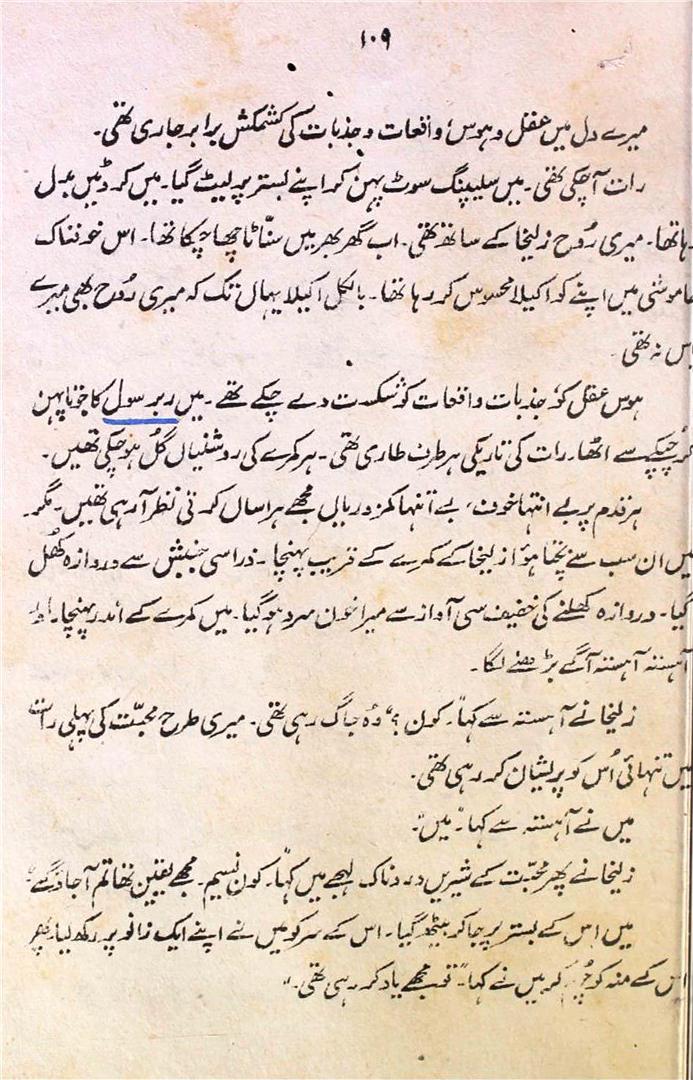 ۱۰۹
میرے دل میں عقل و ہوس، واقعات و جذبات کی کشمکش برابر جاری تھی۔
رات آ چکی تھی۔ میں سلیپنگ سوٹ پہن کر اپنے بستر پر لیٹ گیا۔ میں کروٹیں بدل
رہا تھا۔ میری رُوح زلیخا کے ساتھ تھی۔ اب گھر بھر میں سنّاٹا چھا چکا تھا۔ اس خوفناک
خاموشی میں اپنے کو اکیلا محسوس کر رہا تھا۔ بالکل اکیلا یہاں تک کہ میری رُوح بھی میرے
پاس نہ تھی۔
ہوس عقل کو، جذبات واقعات کو شکست دے چکے تھے۔ میں ربر سول کا جوتا پہن
کر چپکے سے اٹھا۔ رات کی تاریکی ہر طرف طاری تھی۔ ہر کمرے کی روشنیاں گُل ہو چکی تھیں۔
ہر قدم پر بے انتہا خوف، بے انتہا کمزوریاں مجھے ہراساں کرتی نظر آ رہی تھیں۔ مگر
میں ان سب سے بچتا ہؤا زلیخا کے کمرے کے قریب پہنچا۔ ذرا سی جنبش سے دروازہ کھُل
گیا۔ دروازہ کھلنے کی خفیف سی آواز سے میرا خون سرد ہو گیا۔ میں کمرے کے اندر پہنچا۔ اور
آہستہ آہستہ آگے بڑھنے لگا۔
زلیخا نے آہستہ سے کہا۔ "کون؟" وُہ جاگ رہی تھی۔ میری طرح محبّت کی پہلی رات
میں تنہائی اُس کو پریشان کر رہی تھی۔
میں نے آہستہ سے کہا۔ "میں"۔
زلیخا نے پھر محبّت کے شیریں دردناک لہجے میں کہا۔ "کون نسیم۔ مجھے یقین تھا تم آ جاؤ گے"
میں اس کے بستر پر جا کر بیٹھ گیا۔ اس کے سر کو میں نے اپنے ایک زانو پر رکھ لیا۔ پھر
اس کے منہ کو چُوم کر میں نے کہا۔ "تو مجھے یاد کر رہی تھی۔"